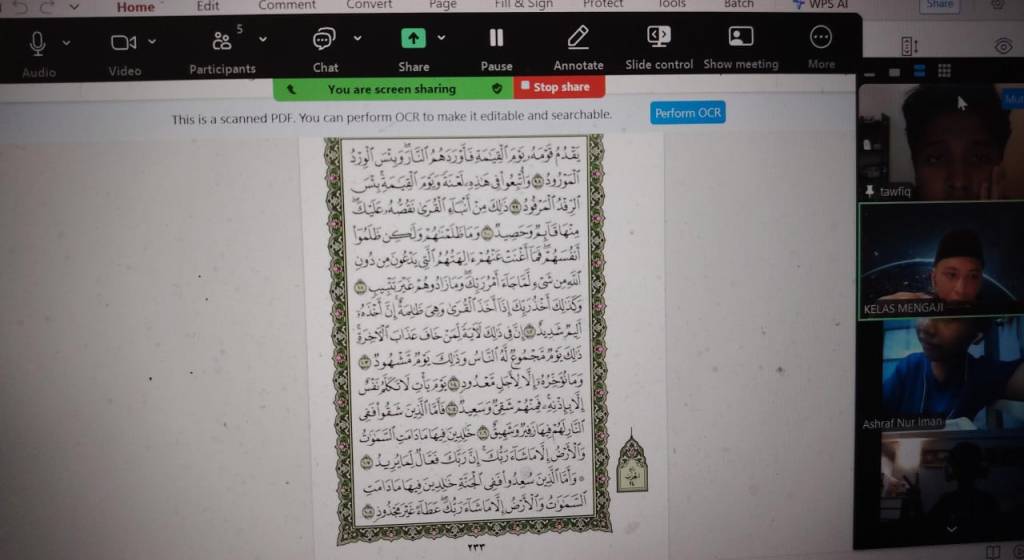 Home Edit Comment Convert Page Fill & Sign Protect Tools Batch WPS AI Share
5
Audio Video Participants Chat Share Pause Annotate Slide control Show meeting More
You are screen sharing Stop share
This is a scanned PDF. You can perform OCR to make it editable and searchable. Perform OCR
يَقْدُمُ قَوْمَهُۥ يَوْمَ ٱلْقِيَٰمَةِ فَأَوْرَدَهُمُ ٱلنَّارَ وَبِئْسَ ٱلْوِرْدُ
ٱلْمَوْرُودُ ٩٨ وَأُتْبِعُوا۟ فِى هَٰذِهِۦ لَعْنَةً وَيَوْمَ ٱلْقِيَٰمَةِ بِئْسَ
ٱلرِّفْدُ ٱلْمَرْفُودُ ٩٩ ذَٰلِكَ مِنْ أَنۢبَآءِ ٱلْقُرَىٰ نَقُصُّهُۥ عَلَيْكَ
مِنْهَا قَآئِمٌ وَحَصِيدٌ ١٠٠ وَمَا ظَلَمْنَٰهُمْ وَلَٰكِن ظَلَمُوٓا۟
أَنفُسَهُمْ فَمَآ أَغْنَتْ عَنْهُمْ ءَالِهَتُهُمُ ٱلَّتِى يَدْعُونَ مِن دُونِ
ٱللَّهِ مِن شَىْءٍ لَّمَّا جَآءَ أَمْرُ رَبِّكَ وَمَا زَادُوهُمْ غَيْرَ تَتْبِيبٍ ١٠١
وَكَذَٰلِكَ أَخْذُ رَبِّكَ إِذَآ أَخَذَ ٱلْقُرَىٰ وَهِىَ ظَٰلِمَةٌ إِنَّ أَخْذَهُۥٓ
أَلِيمٌ شَدِيدٌ ١٠٢ إِنَّ فِى ذَٰلِكَ لَءَايَةً لِّمَنْ خَافَ عَذَابَ ٱلْءَاخِرَةِ
ذَٰلِكَ يَوْمٌ مَّجْمُوعٌ لَّهُ ٱلنَّاسُ وَذَٰلِكَ يَوْمٌ مَّشْهُودٌ ١٠٣
وَمَا نُؤَخِّرُهُۥٓ إِلَّا لِأَجَلٍ مَّعْدُودٍ ١٠٤ يَوْمَ يَأْتِ لَا تَكَلَّمُ نَفْسٌ
إِلَّا بِإِذْنِهِۦ فَمِنْهُمْ شَقِىٌّ وَسَعِيدٌ ١٠٥ فَأَمَّا ٱلَّذِينَ شَقُوا۟ فَفِى
ٱلنَّارِ لَهُمْ فِيهَا زَفِيرٌ وَشَهِيقٌ ١٠٦ خَٰلِدِينَ فِيهَا مَا دَامَتِ ٱلسَّمَٰوَٰتُ
وَٱلْأَرْضُ إِلَّا مَا شَآءَ رَبُّكَ إِنَّ رَبَّكَ فَعَّالٌ لِّمَا يُرِيدُ ١٠٧
۞ وَأَمَّا ٱلَّذِينَ سُعِدُوا۟ فَفِى ٱلْجَنَّةِ خَٰلِدِينَ فِيهَا مَا دَامَتِ
ٱلسَّمَٰوَٰتُ وَٱلْأَرْضُ إِلَّا مَا شَآءَ رَبُّكَ عَطَآءً غَيْرَ مَجْذُوذٍ ١٠٨
٢٣٣
tawfiq
KELAS MENGAJI
Ashraf Nur Iman